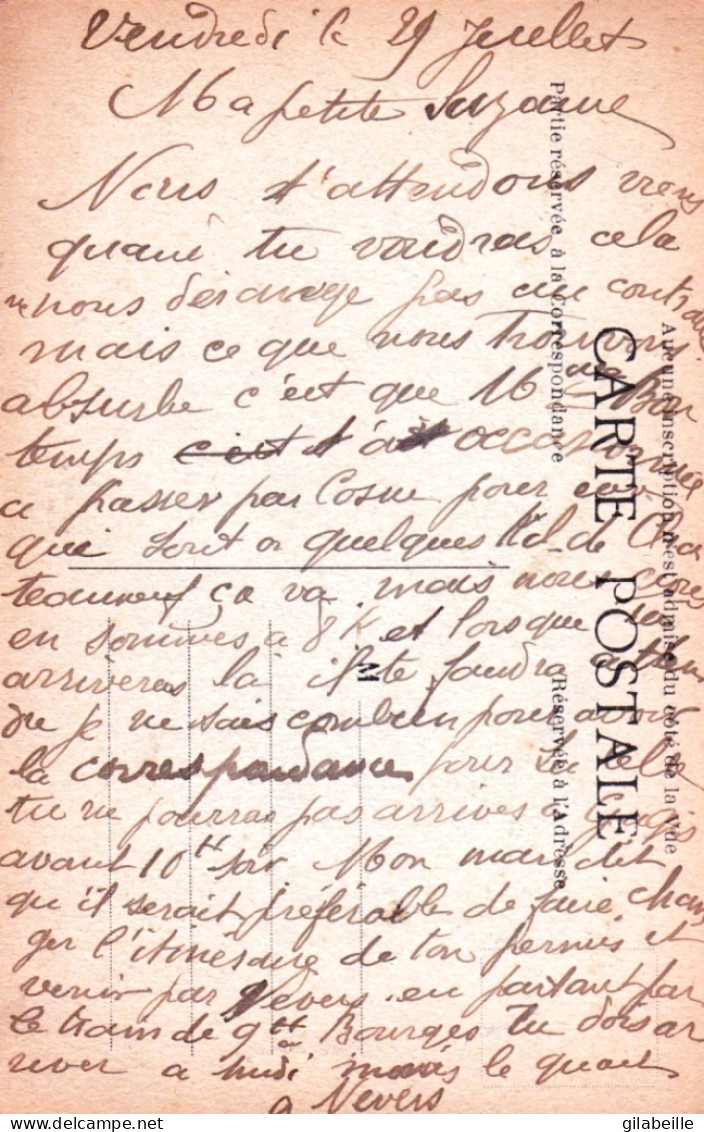 Vendredi le 29 Juellet
Ma petite Suzanne
Nous t'attendons viens
quand tu voudras cela
nous dérange pas au contraire
mais ce que nous trouvons
absurbe c'est que 16 Bon
temps c'est t'a occasionnée
a passer par Cosne pour
qui sont a quelques Kil. de Cha
teauneuf ça va, mais nous
en sommes à 8 K et lorsque tu
arriveras la il te faudra atten
dre je ne sais combien pour avoir
la correspondance pour
tu ne pourras pas arriver a
avant 10H soir Mon mari dit
qu'il serait préférable de faire chan
ger l'itinéraire de ton permis et
venir par Nevers en partant par
le train de 9H a Bourges tu dois ar
river a midi moins le quart
a Nevers
CARTE POSTALE
Aucune inscription n'est admise du côté de la Vue
Partie réservée à la Correspondance
Réservée à l'Adresse
M
gilabeille